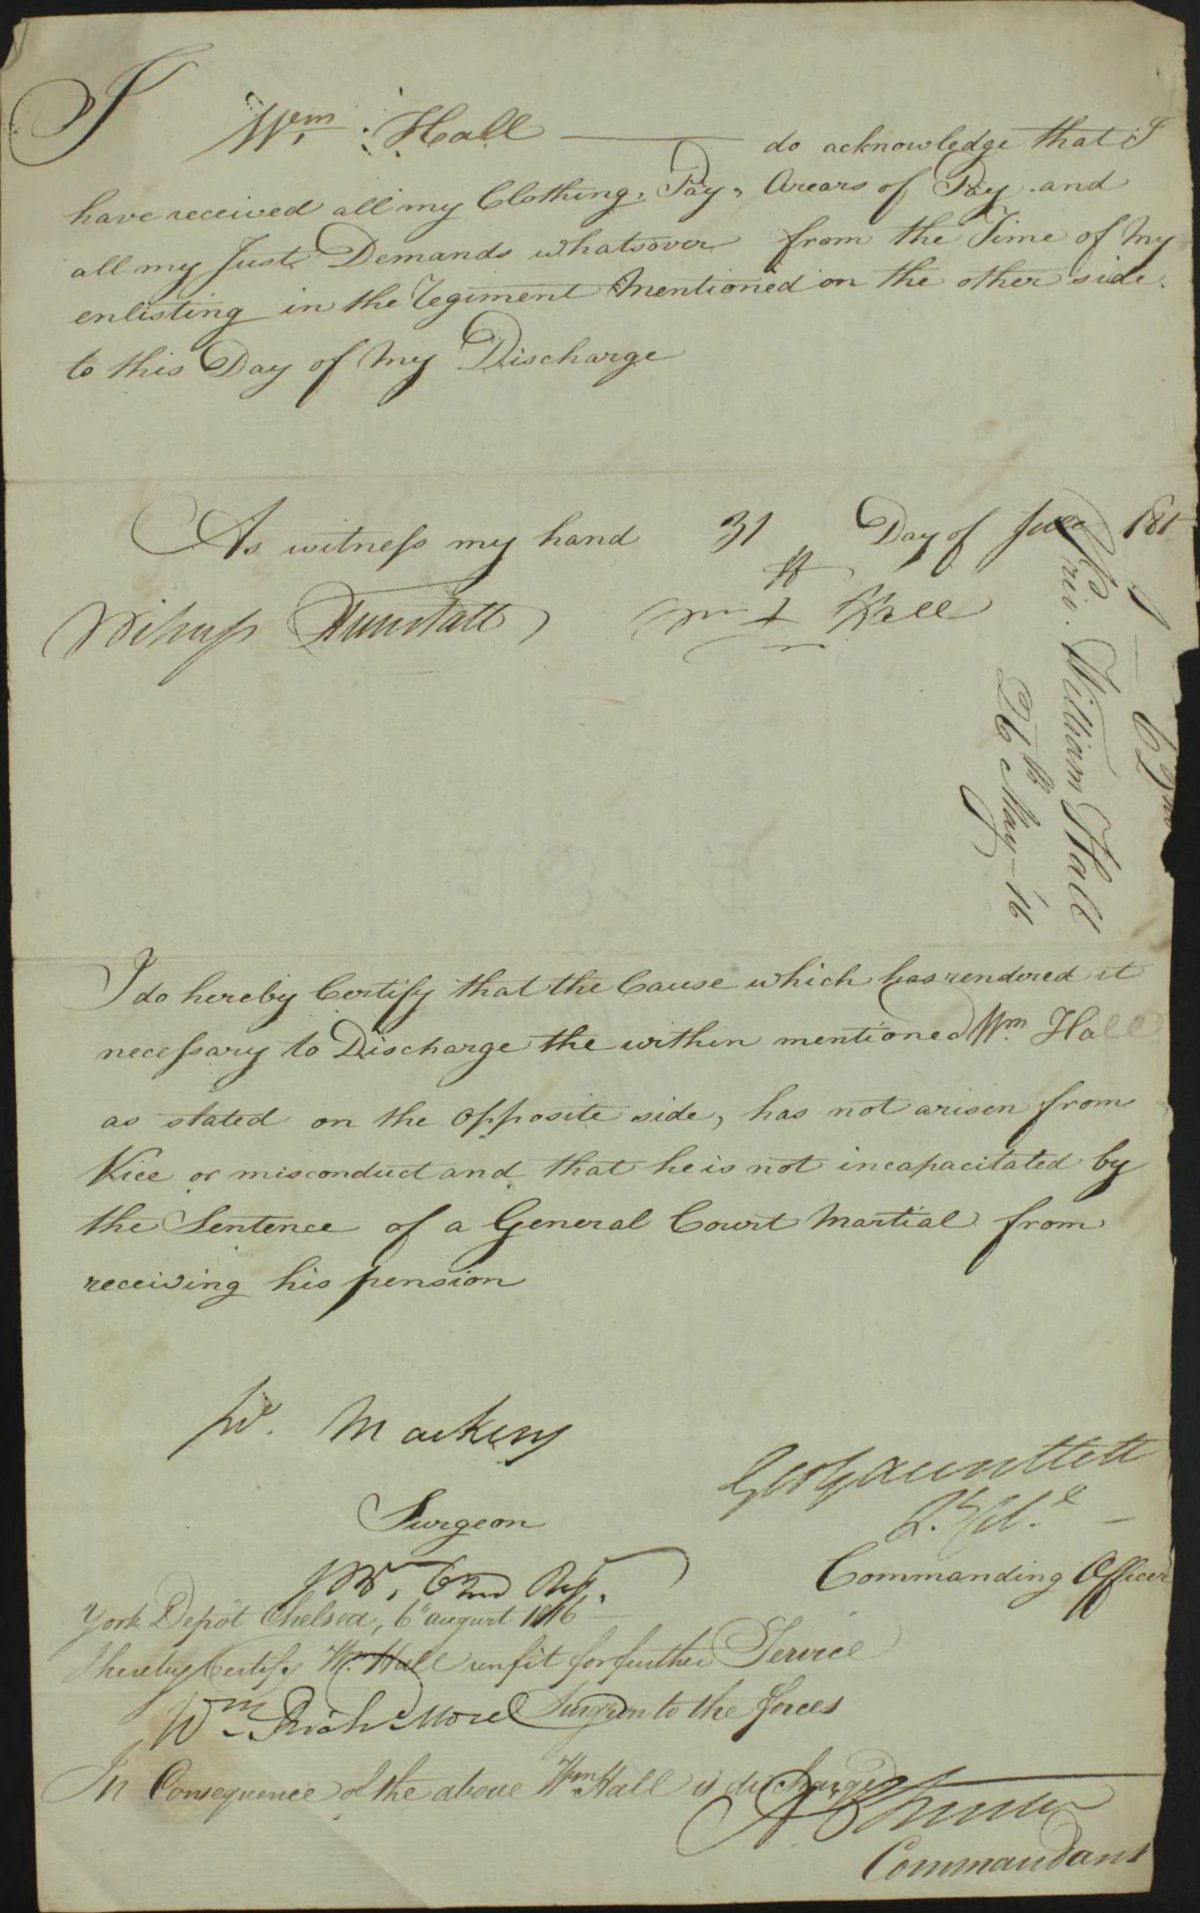 I Wm. Hall do acknowledge that I
have received all my Clothing, Pay, Arears of Pay and
all my Just Demands whatsover from the Time of My
enlisting in the Regiment Mentioned on the other side.
to this Day of My Discharge
As witness my hand 31 Day of July 181
Witness Tunstall Wm X Hall
62nd
Priv. William Hall
26th May 16
I do hereby Certify that the Cause which has rendered it
necessary to Discharge the within mentioned Wm. Hall
as stated on the opposite side, has not arisen from
Vice or misconduct and that he is not incapacitated by
the Sentence of a General Court Martial from
receiving his pension
W.
Surgeon
62nd Regt.
Commanding Officer
York Depôt Chelsea, 6th august 1816
I hereby Certify Wm. Hall unfit for further Service
Wm. Surgeon to the forces
In Consequence of the above Wm Hall is discharged
Commandant